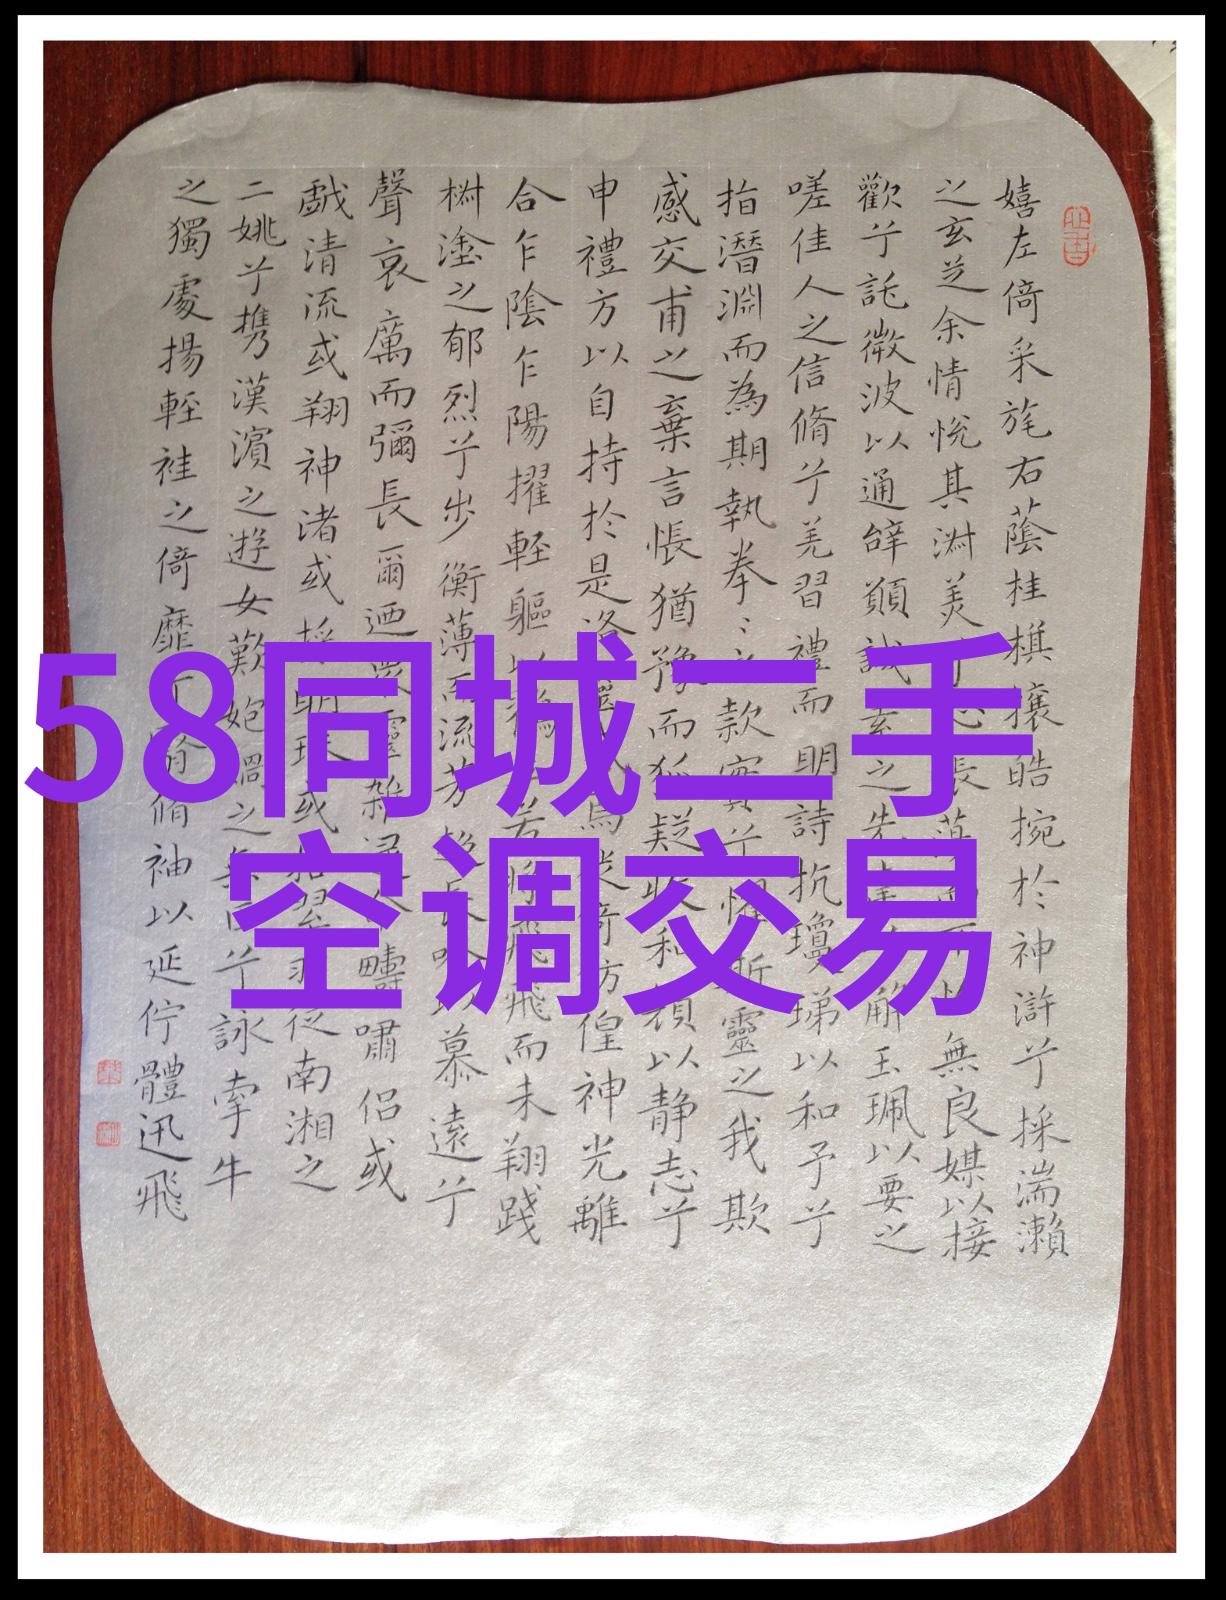 58同城二手
空调交易
嬉左倚采旄右蔭桂棋攘皓捥於神滸兮採湍瀨
之玄芝余情悅其淑美兮心無良媒以接
歡兮託微波以通辝願誠素之先解玉珮以要之
嗟佳人之信脩兮羌習禮而明詩抗瓊珶以和予兮
指潛淵而為期執拳〻之款實兮懼斯靈之我欺
感交甫之棄言悵猶豫而狐疑收和顏以静志兮
申禮方以自持於是洛焉徙倚彷徨神光離
合乍陰乍陽擢軽軀以若將飛飛而未翔踐
椒塗之郁烈兮步衡薄而流芳超長吟以慕遠兮
聲哀厲而彌長爾迺衆靈雜疇嘯侣或
戲清流或翔神渚或採明珠或拾翠羽從南湘之
二姚兮携漢濱之遊女歎匏媧之無匹兮詠牽牛
之獨處揚軽袿之倚靡兮翳脩袖以延佇體迅飛